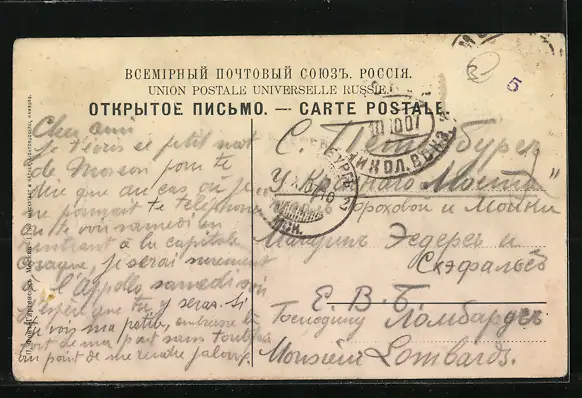 ВСЕМІРНЫЙ ПОЧТОВЫЙ СОЮЗЪ. РОССІЯ.
UNION POSTALE UNIVERSELLE RUSSIE.
ОТКРЫТОЕ ПИСЬМО. — CARTE POSTALE.
5
Cher ami
Je t'écris ce petit mot
de Moscou pour te
dire que au cas où je
ne pourrait te téléphoner
ou te voir samedi en
rentrant à la capitale
je serai surement
à l'Appollo samedi soir
J'espère que tu y seras. Si
tu vois ma petite, embrasse la
de ma part sans toutefois
au point de me rendre jaloux.
С. Петербургъ
У Краснаго Моста
Гороховой и Мойки
Магазинъ Эдерсъ и
Скэфальсъ
Е. В. Б.
Господину Ломбардъ
Monsieur Lombards.
10 1907
НИКОЛ. ВОКЗ.